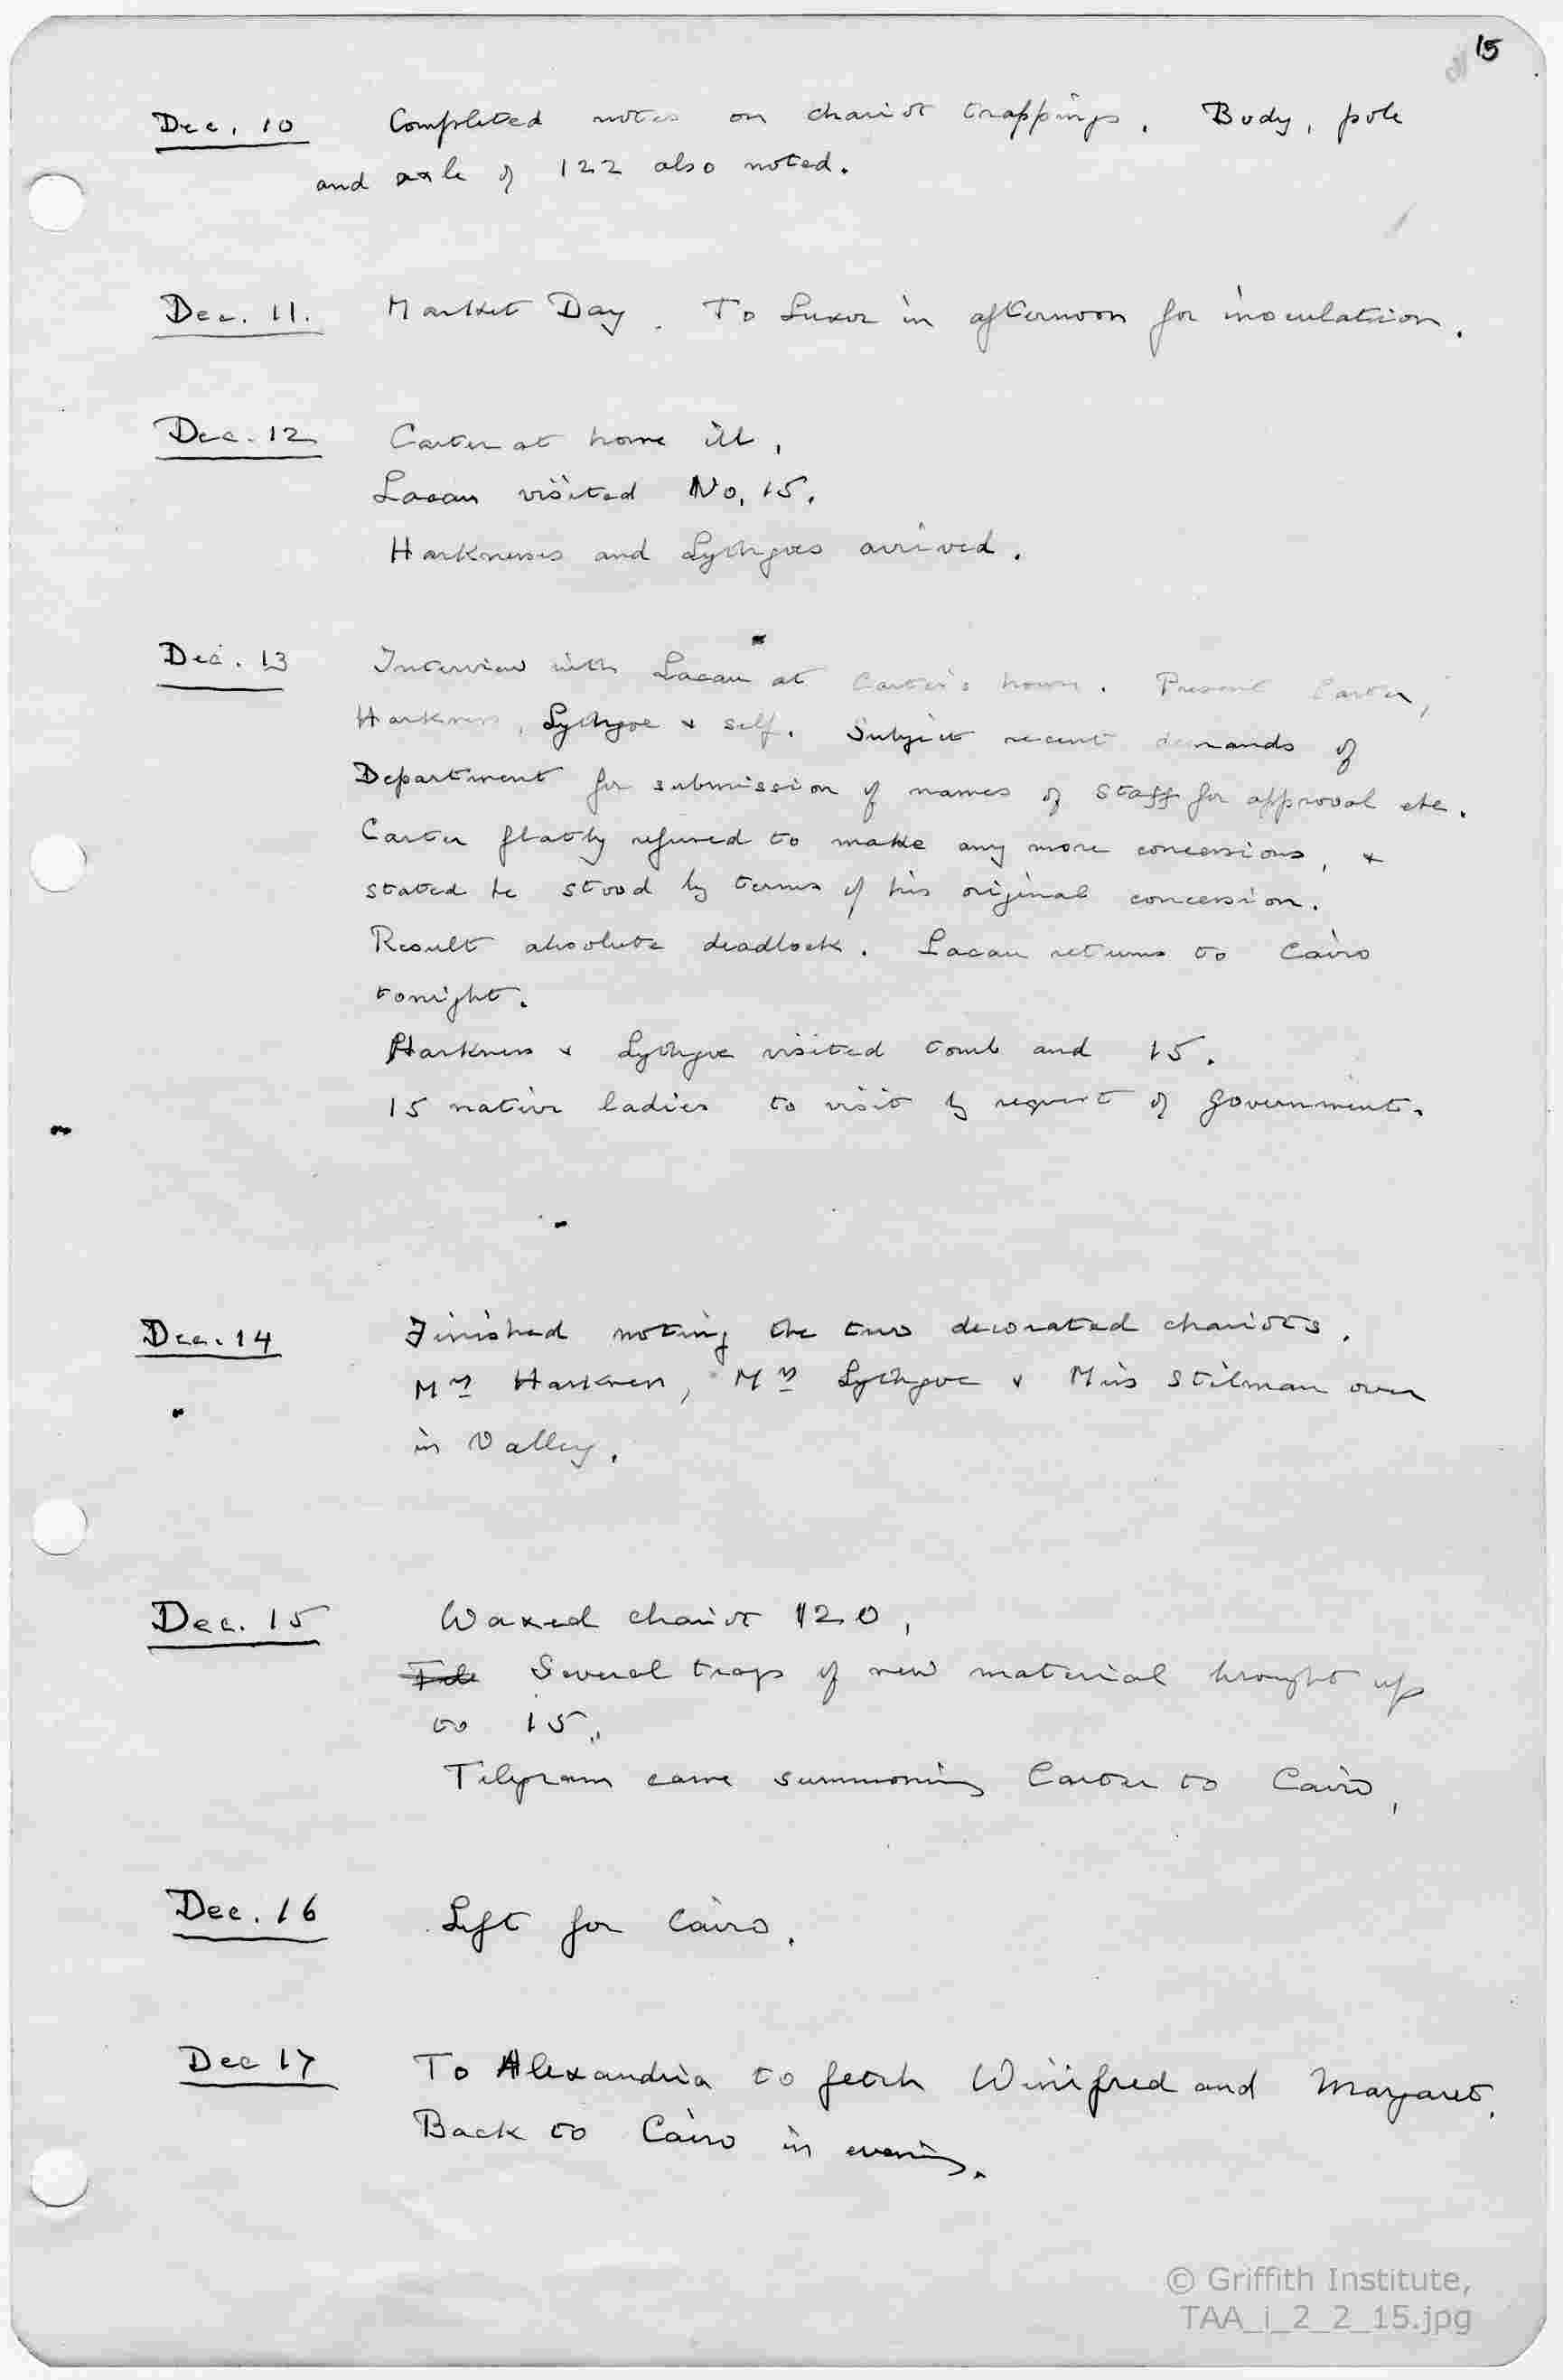 15
Dec. 10 Completed notes on chariot trappings. Body, pole
and axle of 122 also noted.
Dec. 11. Market Day. To Luxor in afternoon for inoculation.
Dec. 12 Carter at home ill.
Lacau visited No. 15.
Harknesses and Lythgoes arrived.
Dec. 13 Interview with Lacau at Carter's house. Present Carter,
Harkness, Lythgoe & self. Subject recent demands of
Department for submission of names of staff for approval etc.
Carter flatly refused to make any more concessions, &
stated he stood by terms of his original concession.
Result absolute deadlock. Lacau returns to Cairo
tonight.
Harkness & Lythgoe visited tomb and 15.
15 native ladies to visit by request of government.
Dec. 14 Finished noting the two decorated chariots.
Mrs Harkness, Mrs Lythgoe & Miss Stilman over
in Valley.
Dec. 15 Waxed chariot 120.
Several trays of new material brought up
to 15.
Telegram came summoning Carter to Cairo.
Dec. 16 Left for Cairo.
Dec 17 To Alexandria to fetch Winifred and Margaret.
Back to Cairo in evening.
© Griffith Institute,
TAA_i_2_2_15.jpg